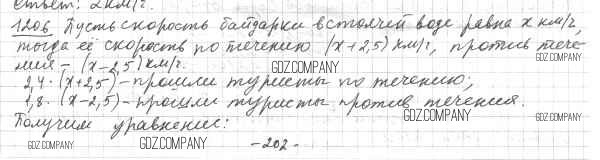 Ответ: 2 км/ч.
1206 Пусть скорость байдарки в стоячей воде равна x км/ч,
тогда её скорость по течению (x+2,5) км/ч, против тече-
ния – (x-2,5) км/ч.
GDZ.COMPANY GDZ.COMPANY
2,4·(x+2,5) – прошли туристы по течению;
1,8·(x-2,5) – прошли туристы против течения.
GDZ.COMPANY
Получим уравнение:
GDZ.COMPANY GDZ.COMPANY -202- GDZ.COMPANY